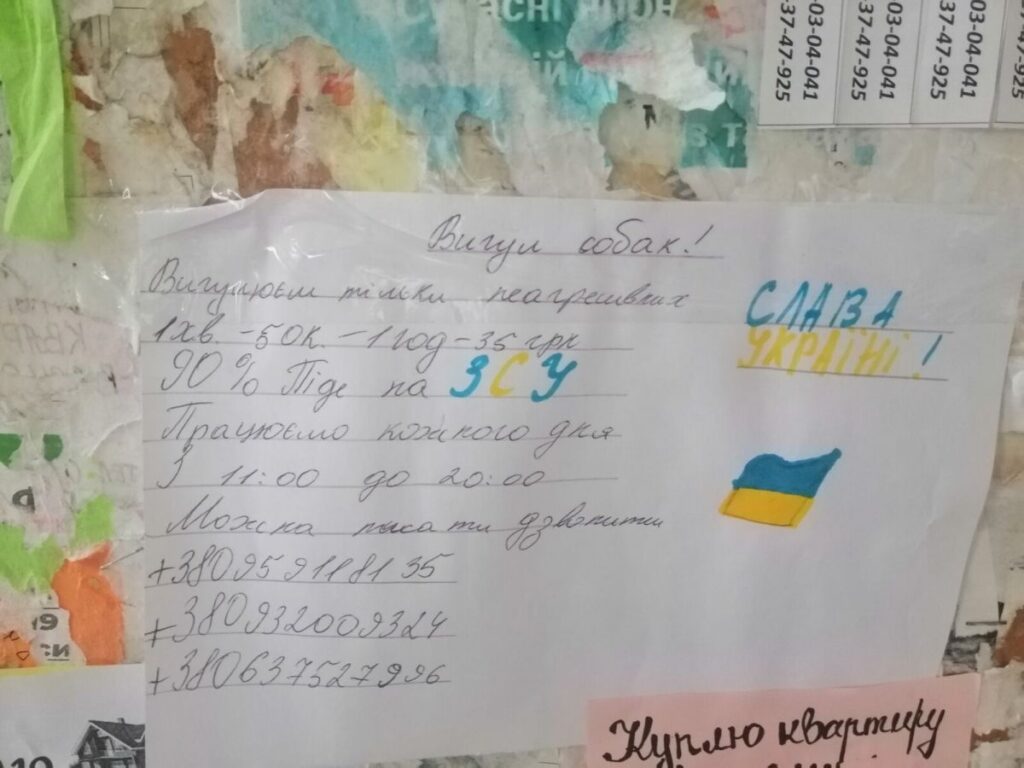 03-04-041
37-47-925
03-04-041
37-47-925
03-04-041
37-47-925
Вигул собак!
Вигулюєм тільки неагресивних
1хв. - 50к. - 1 год - 35 грн
90% Піде на ЗСУ
Працюємо кожного дня
З 11:00 до 20:00
Можна писати дзвонити
+380959118135
+380932009324
+380637527996
СЛАВА
УКРАЇНІ!
Куплю квартиру